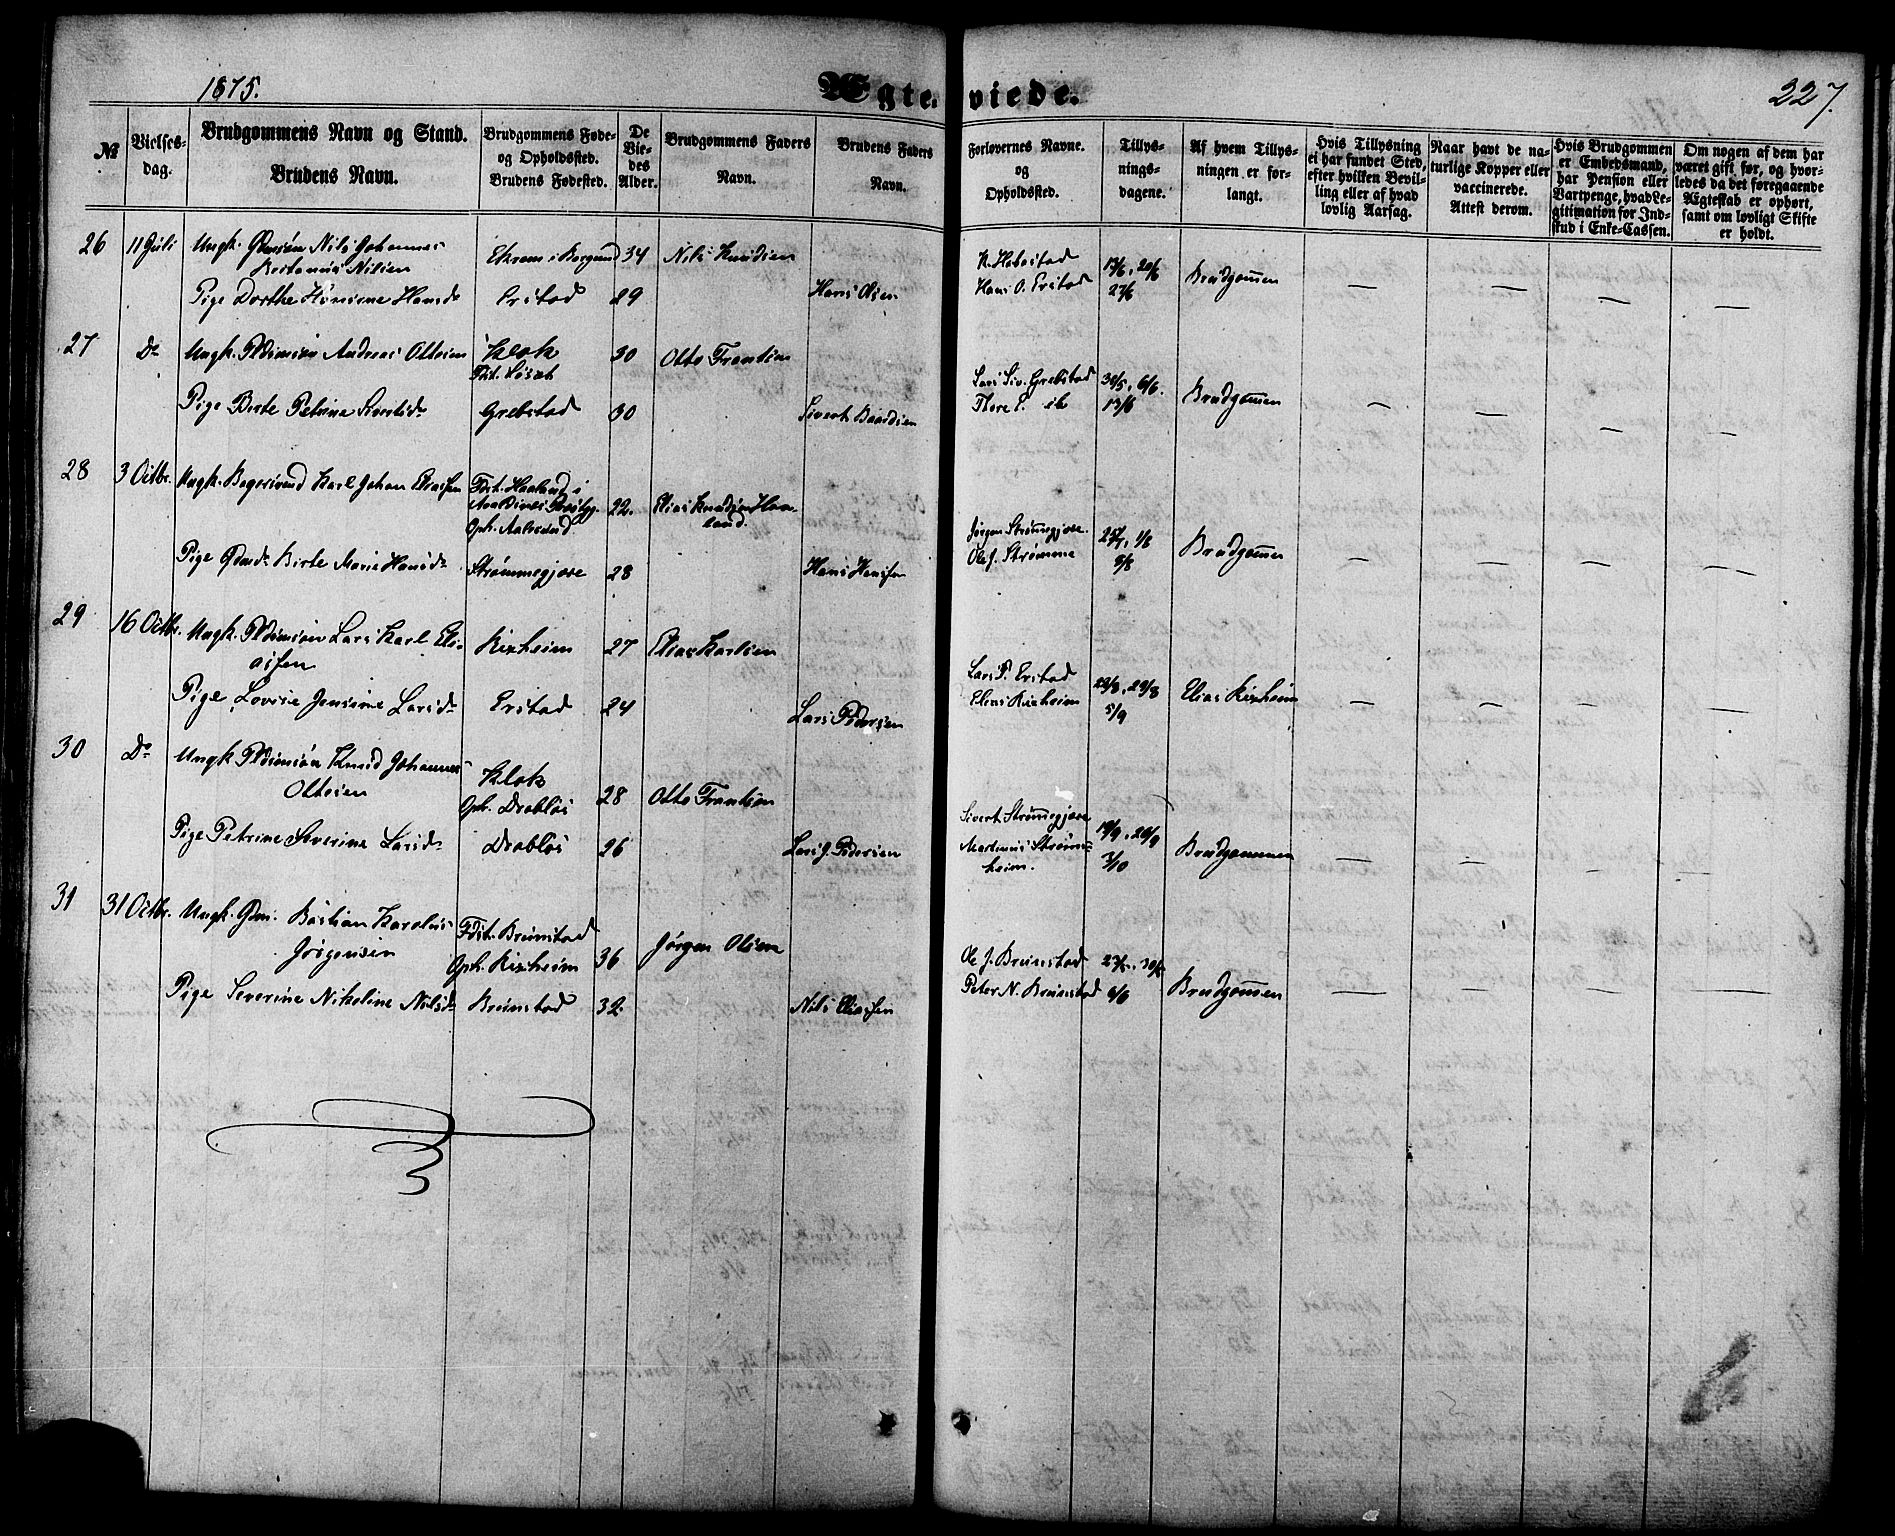 1875.
Ægteviede.
227.
№
Vielses-
dag.
Brudgommens Navn og Stand.
Brudens Navn.
Brudgommens Føde-
og Opholdssted.
Brudens Fødested.
De
Vie-
des
Alder.
Brudgommens Faders
Navn.
Brudens Faders
Navn.
Forlovernes Navne.
og
Opholdssted.
Tillys-
nings-
dagene.
Af hvem Tillys-
ningen er for-
langt.
Hvis Tillysning
ei har fundet Sted,
efter hvilken Bevil-
ling eller af hvad
lovlig Aarsag.
Naar havt de na-
turlige Kopper eller
vaccinerede.
Attest derom.
Hvis Brudgommen
er Embedsmand,
har Pension eller
Vartpenge, hvad Le-
gitimation for Ind-
skud i Enke-Cassen.
Om nogen af dem har
været gift før, og hvor-
ledes da det foregaaende
Ægteskab er ophørt,
samt om lovligt Skifte
er holdt.
26 11 Juli Ungk. Nils Johannes
Nilsen
Ekrem i Borgund 34 Nils Knudsen
K. Habostad
Hans O. Erstad
13/6, 20/6
27/6
Brudgommen — — — —
Pige Dorthe Hansd. Erstad 29 Hans Olsen
27 Do Ungk. Andreas Ottesen Klok
Fdst. 30 Otto Frantsen
Lars Siv. Grebstad
Thore S. ib
30/5, 6/6.
13/6
Brudgommen — — — —
Pige Berte Petrine Sivertsd. Grebstad 30 Sivert Baardsen
28 3 Octbr. Ungk. Bagersvend Karl Johan Eliassen Fdst. Haaland i
Oph. Aalesund 22. Elias Knudsen Haa-
land.
Jørgen Strømmegjære
Ole J. Strømme
25/7, 1/8
8/8
Brudgommen — — — —
Pige Birte Marie Hansd. Strømmegjære 28 Hans Hansen
29 16 Octbr. Ungk. Lars Karl Eli-
assen
Rixheim 27 Elias Karlsen
Lars P. Erstad
Elias Rixheim
22/8, 29/8
5/9
Elias Rixheim — — — —
Pige Lovise Jensine Larsd. Erstad 24 Lars Pedersen
30 Do Ungk. Knud Johannes
Ottesen
Klok
Oph. Drabløs 28 Otto Frantsen
Sivert Strømmegjære
Martinus Strøms-
heim.
19/9, 26/9
3/10
Brudgommen — — — —
Pige Petrine Severine Larsd. Drabløs 26 Lars J. Pedersen
31 31 Octbr. Ungk. Gdm. Bastian Karolus
Jørgensen
Fdst. Brunstad
Oph. Rixheim 36 Jørgen Olsen
Ole J. Brunstad
Peter N. Brunstad
23/5, 30/5
6/6
Brudgommen — — — —
Pige Severine Nikoline Nilsd. Brunstad 32. Nils Eliassen